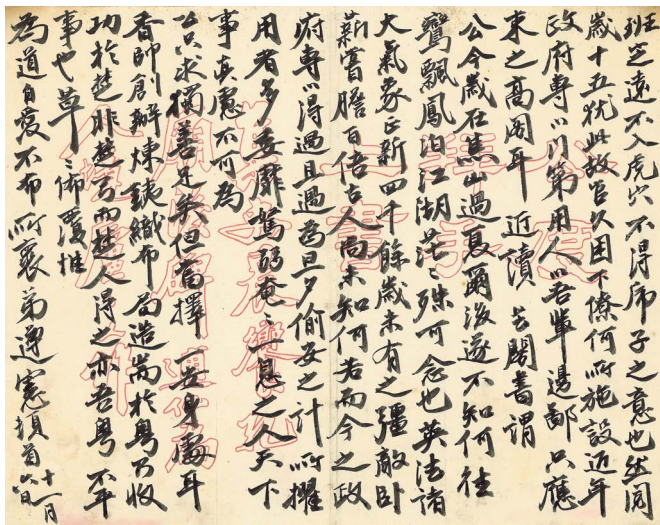 班定遠不入虎穴不得虎子之意也然閱
歲十五犹此故官以困下僚何所施設近年
政府專以門第用人以吾輩邊鄙只應
束之高閣耳近讀 閣書謂
公今歲在焦山過夏爾後遂不知何往
鸞飄鳳泊江湖茫〻殊可念也英法諸
大氣象正新四千餘歲未有之彊敵臥
薪嘗膽百倍古人尚未知何若而今之政
府專以得過且過為旦夕偷安之計所擢
用者多委靡駑弱奄〻一息之人天下
事直慮不可為
公只求獨善足矣但當擇一安身處耳
香帥創辦煉鐵織布局造耑於粵而收
功於楚非楚弓而楚人得之亦吾粵不平
事也草〻佈覆惟
為道自愛不布所裹弟遵憲頓首 十一月六日